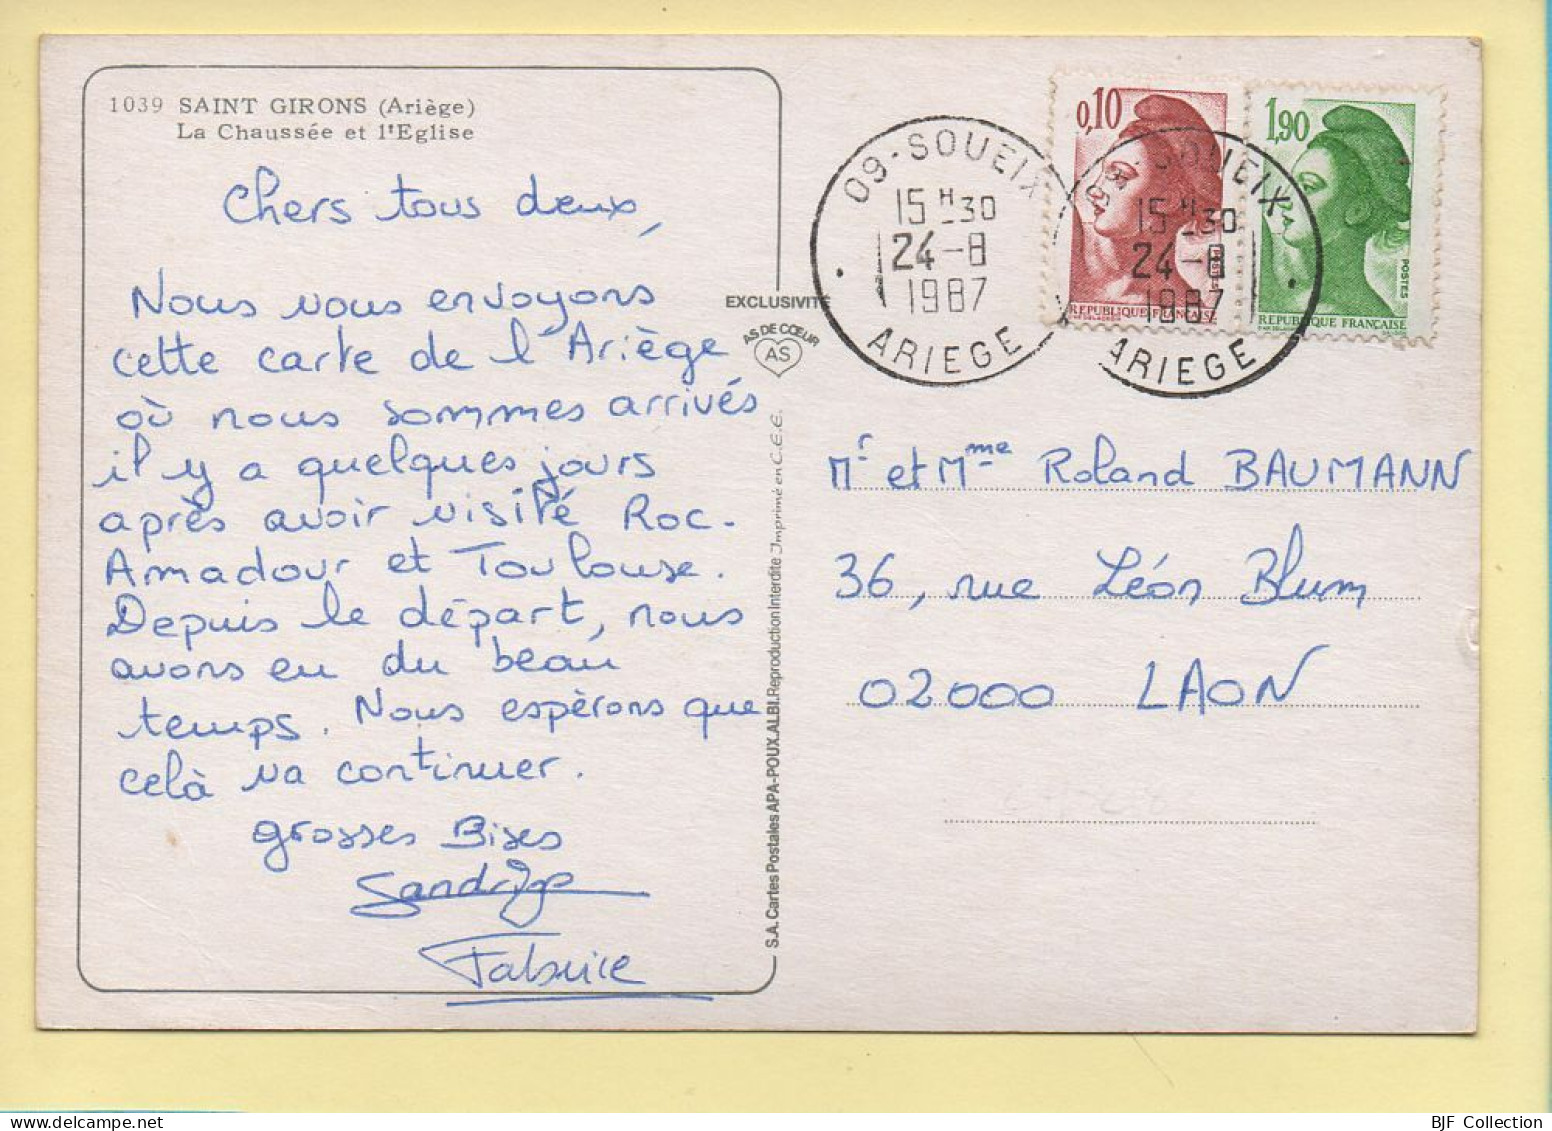 1039 SAINT GIRONS (Ariège)
La Chaussée et l'Eglise
Chers tous deux,
Nous vous envoyons
cette carte de l'Ariège
où nous sommes arrivés
il y a quelques jours
après avoir visité Roc-
Amadour et Toulouse.
Depuis le départ, nous
avons eu du beau
temps. Nous espèrons que
celà va continuer.
grosses Bises
Sandrine
Fabrice
EXCLUSIVITÉ
AS DE CŒUR
AS
S.A. Cartes Postales APA-POUX.ALBI. Reproduction Interdite Imprimé en C.E.E.
09-SOUEIX
15 H 30
24-8
1987
ARIEGE
09-SOUEIX
15 H 30
24-8
1987
ARIEGE
0,10
POSTES
REPUBLIQUE FRANÇAISE
1,90
POSTES
REPUBLIQUE FRANÇAISE
Mr et Mme Roland BAUMANN
36, rue Léon Blum
02000 LAON
BJF Collection